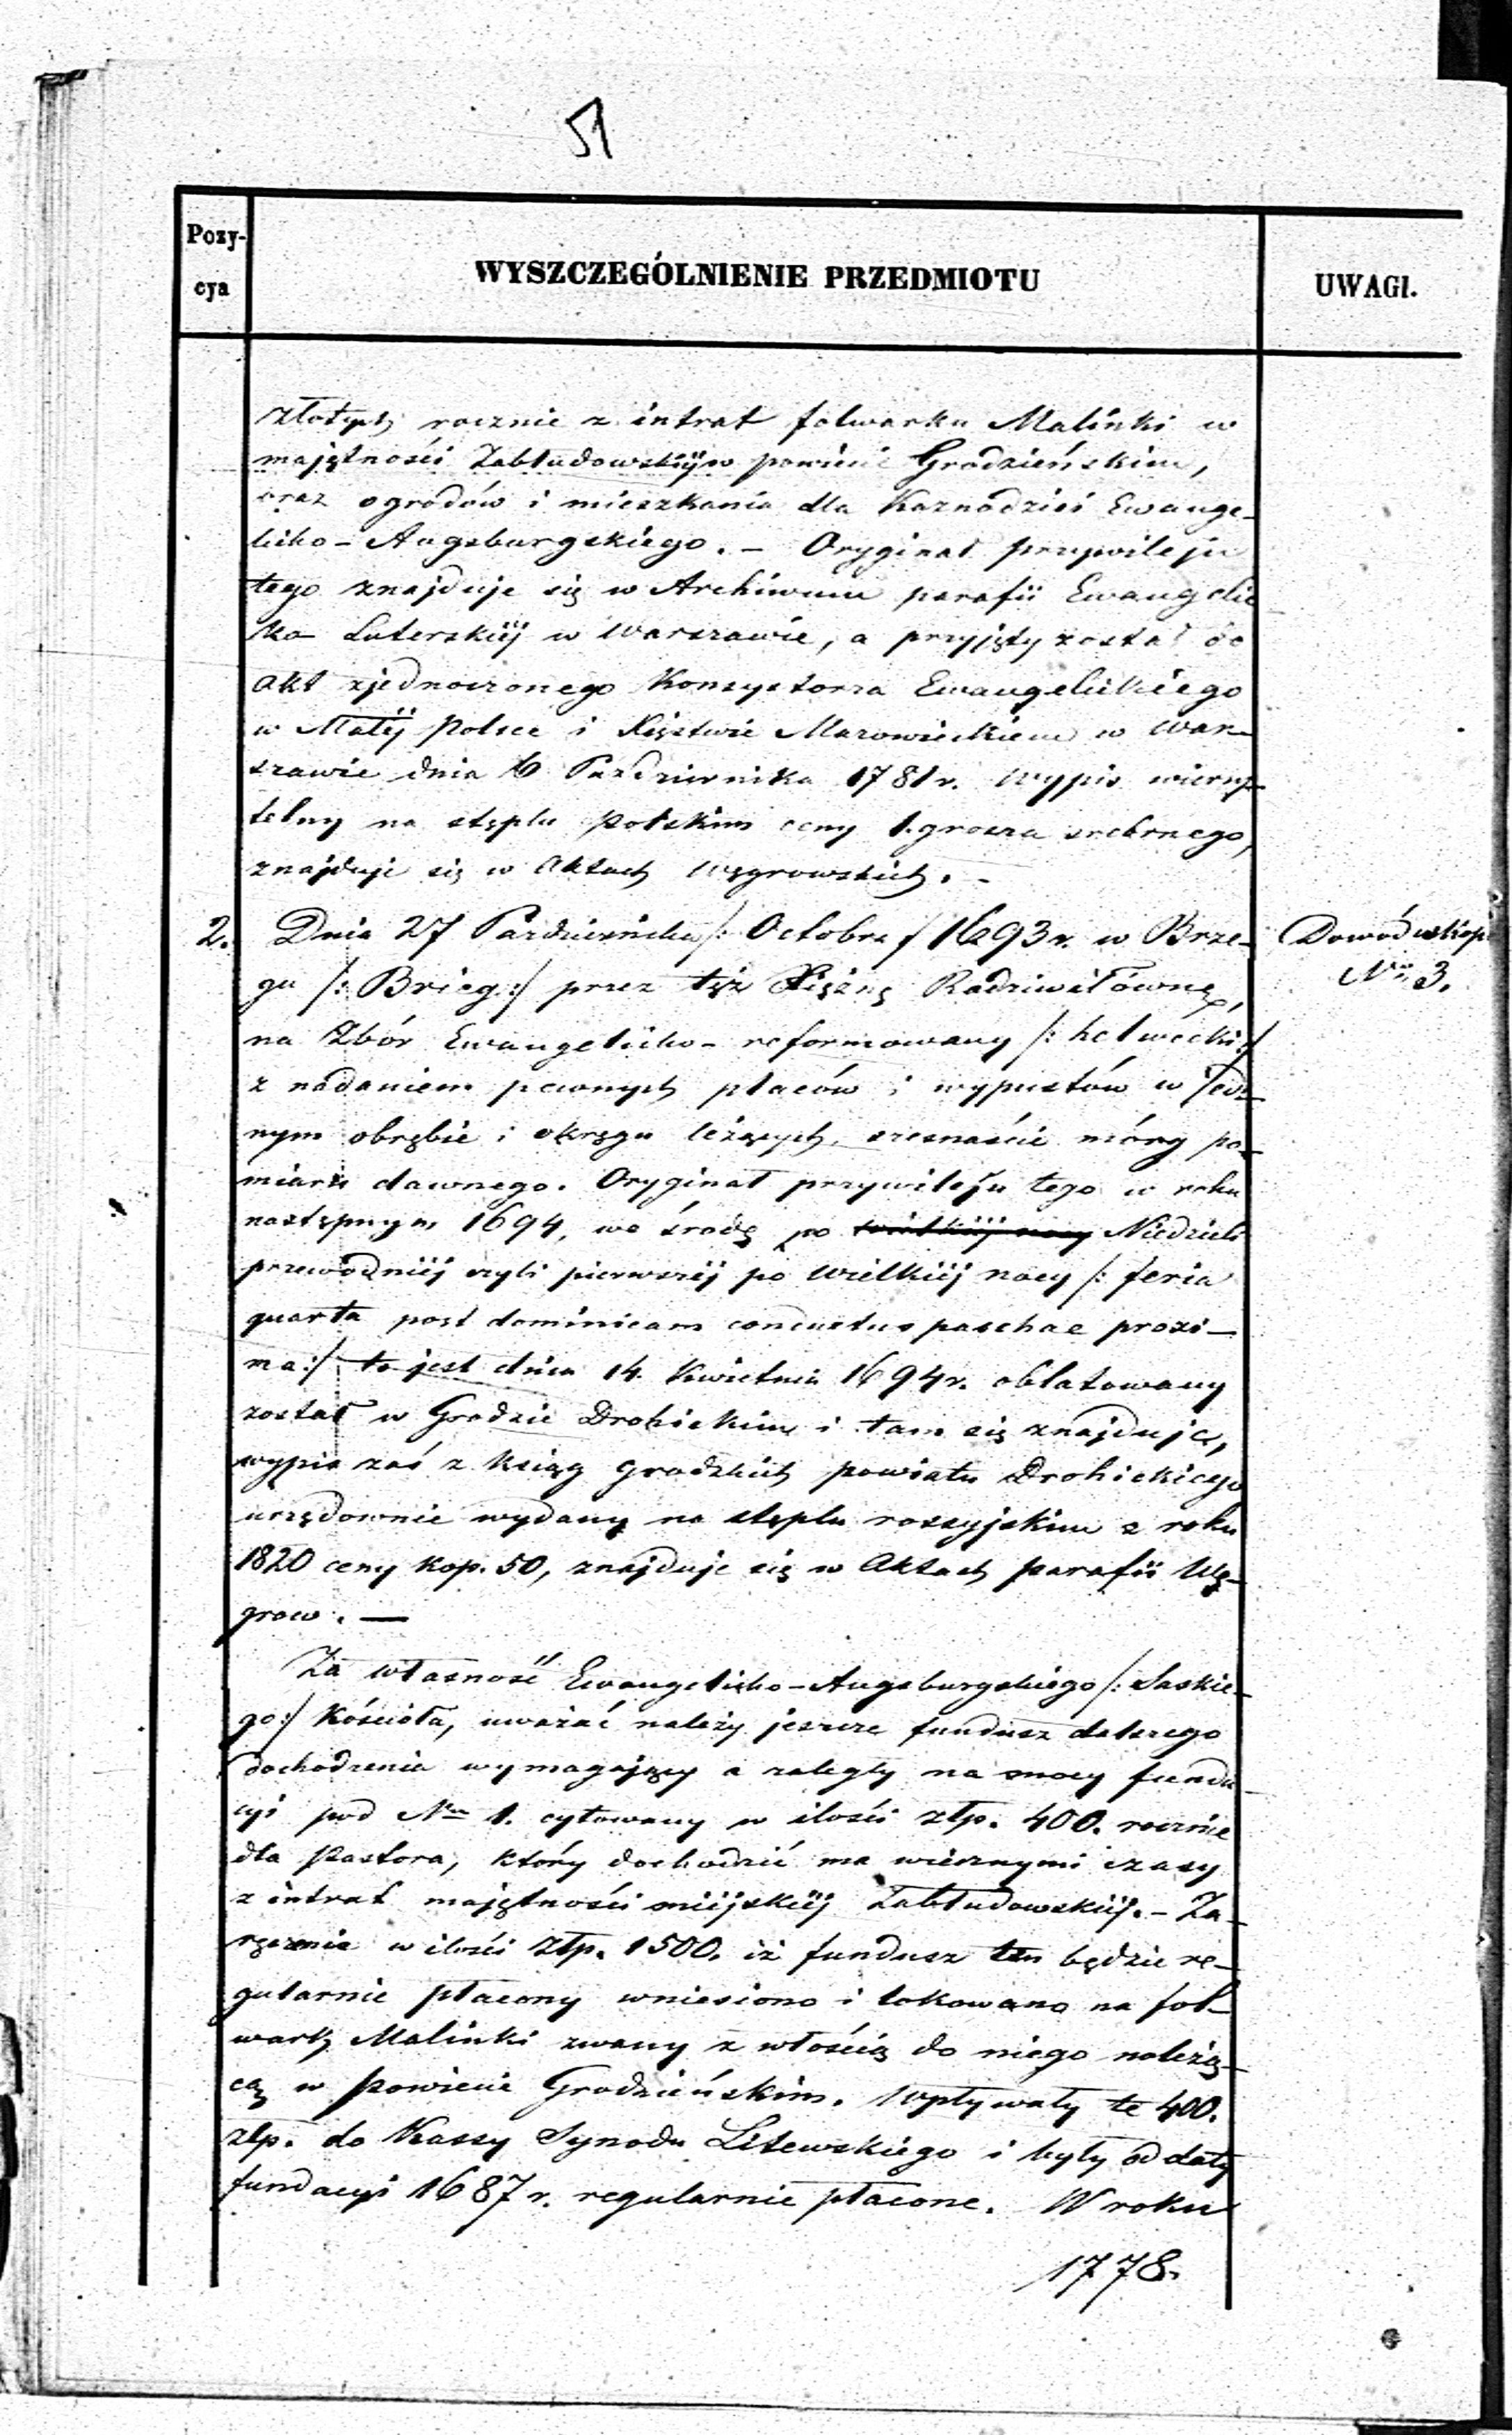 51
Pozy-
cya
WYSZCZEGÓLNIENIE PRZEDMIOTU
UWAGI.
złotych rocznie z intrat folwarku Malinki w
majętności Zabłudowskiéj w powiecie Grodzieńskim,
oraz ogrodów i mieszkania dla Kaznodziei Ewange-
licko-Augsburgskiego. – Oryginał przywileju
tego znajduje się w Archiwum parafii Ewangelic
ko-Luterskiéj w Warszawie, a przyjęty został do
akt zjednoczonego Konsystorza Ewangelickiego
w Małéj Polsce i Xięstwie Mazowieckiem w War-
szawie dnia 16 Października 1781 r. Wypis wierzy-
telny na stęplu polskim ceny 1. grosza srebrnego,
znajduje się w Aktach Węgrowskich. –
2. Dnia 27 Października /: Octobra / 1693 r. w Brze-
gu /: Brieg :/ przez tęż Xiężnę Radziwiłłównę,
na Zbór Ewangelicko-reformowany /: helwecki :/
z nadaniem pewnych placów i wypustów w jed-
nym obrębie i okręgu leżących, szesnaście mórg po-
miaru dawnego. Oryginał przywileju tego w roku
następnym 1694, we środę po wielkiéj nocy Niedzieli
przewodniéj czyli pierwszéj po wielkiéj nocy /: feria
quarta post dominicam conductus paschae proxi-
ma :/ to jest dnia 14. Kwietnia 1694 r. oblatowany
został w Grodzie Drohickim i tam się znajduje,
wypis zaś z ksiąg grodzkich powiatu Drohickiego
urzędownie wydany na stęplu rossyjskim z roku
1820 ceny kop. 50, znajduje się w Aktach parafii Wę-
grow. —
Dowód w kopii
No. 3.
Za własność Ewangelicko-Augsburgskiego /: Saskie-
go :/ Kościoła, uważać należy jeszcze fundusz dalszego
dochodzenia wymagający a zaległy na mocy funda
cyi pod Nrm 1. cytowany w ilości złp. 400. rocznie
dla Pastora, który dochodzić ma wiecznymi czasy
z intrat majętności miéjskiéj Zabłudowskiéj. – Za-
ręczenie w ilości złp. 1500. iż fundusz ten będzie re-
gularnie płacony wniesiono i lokowano na fol-
wark Malinki zwany z włością do niego należą-
cą w powiecie Grodzieńskim. Wpływały te 400.
złp. do Kassy Synodu Litewskiego i były od daty
fundacyi 1687 r. regularnie płacone. W roku
1778.